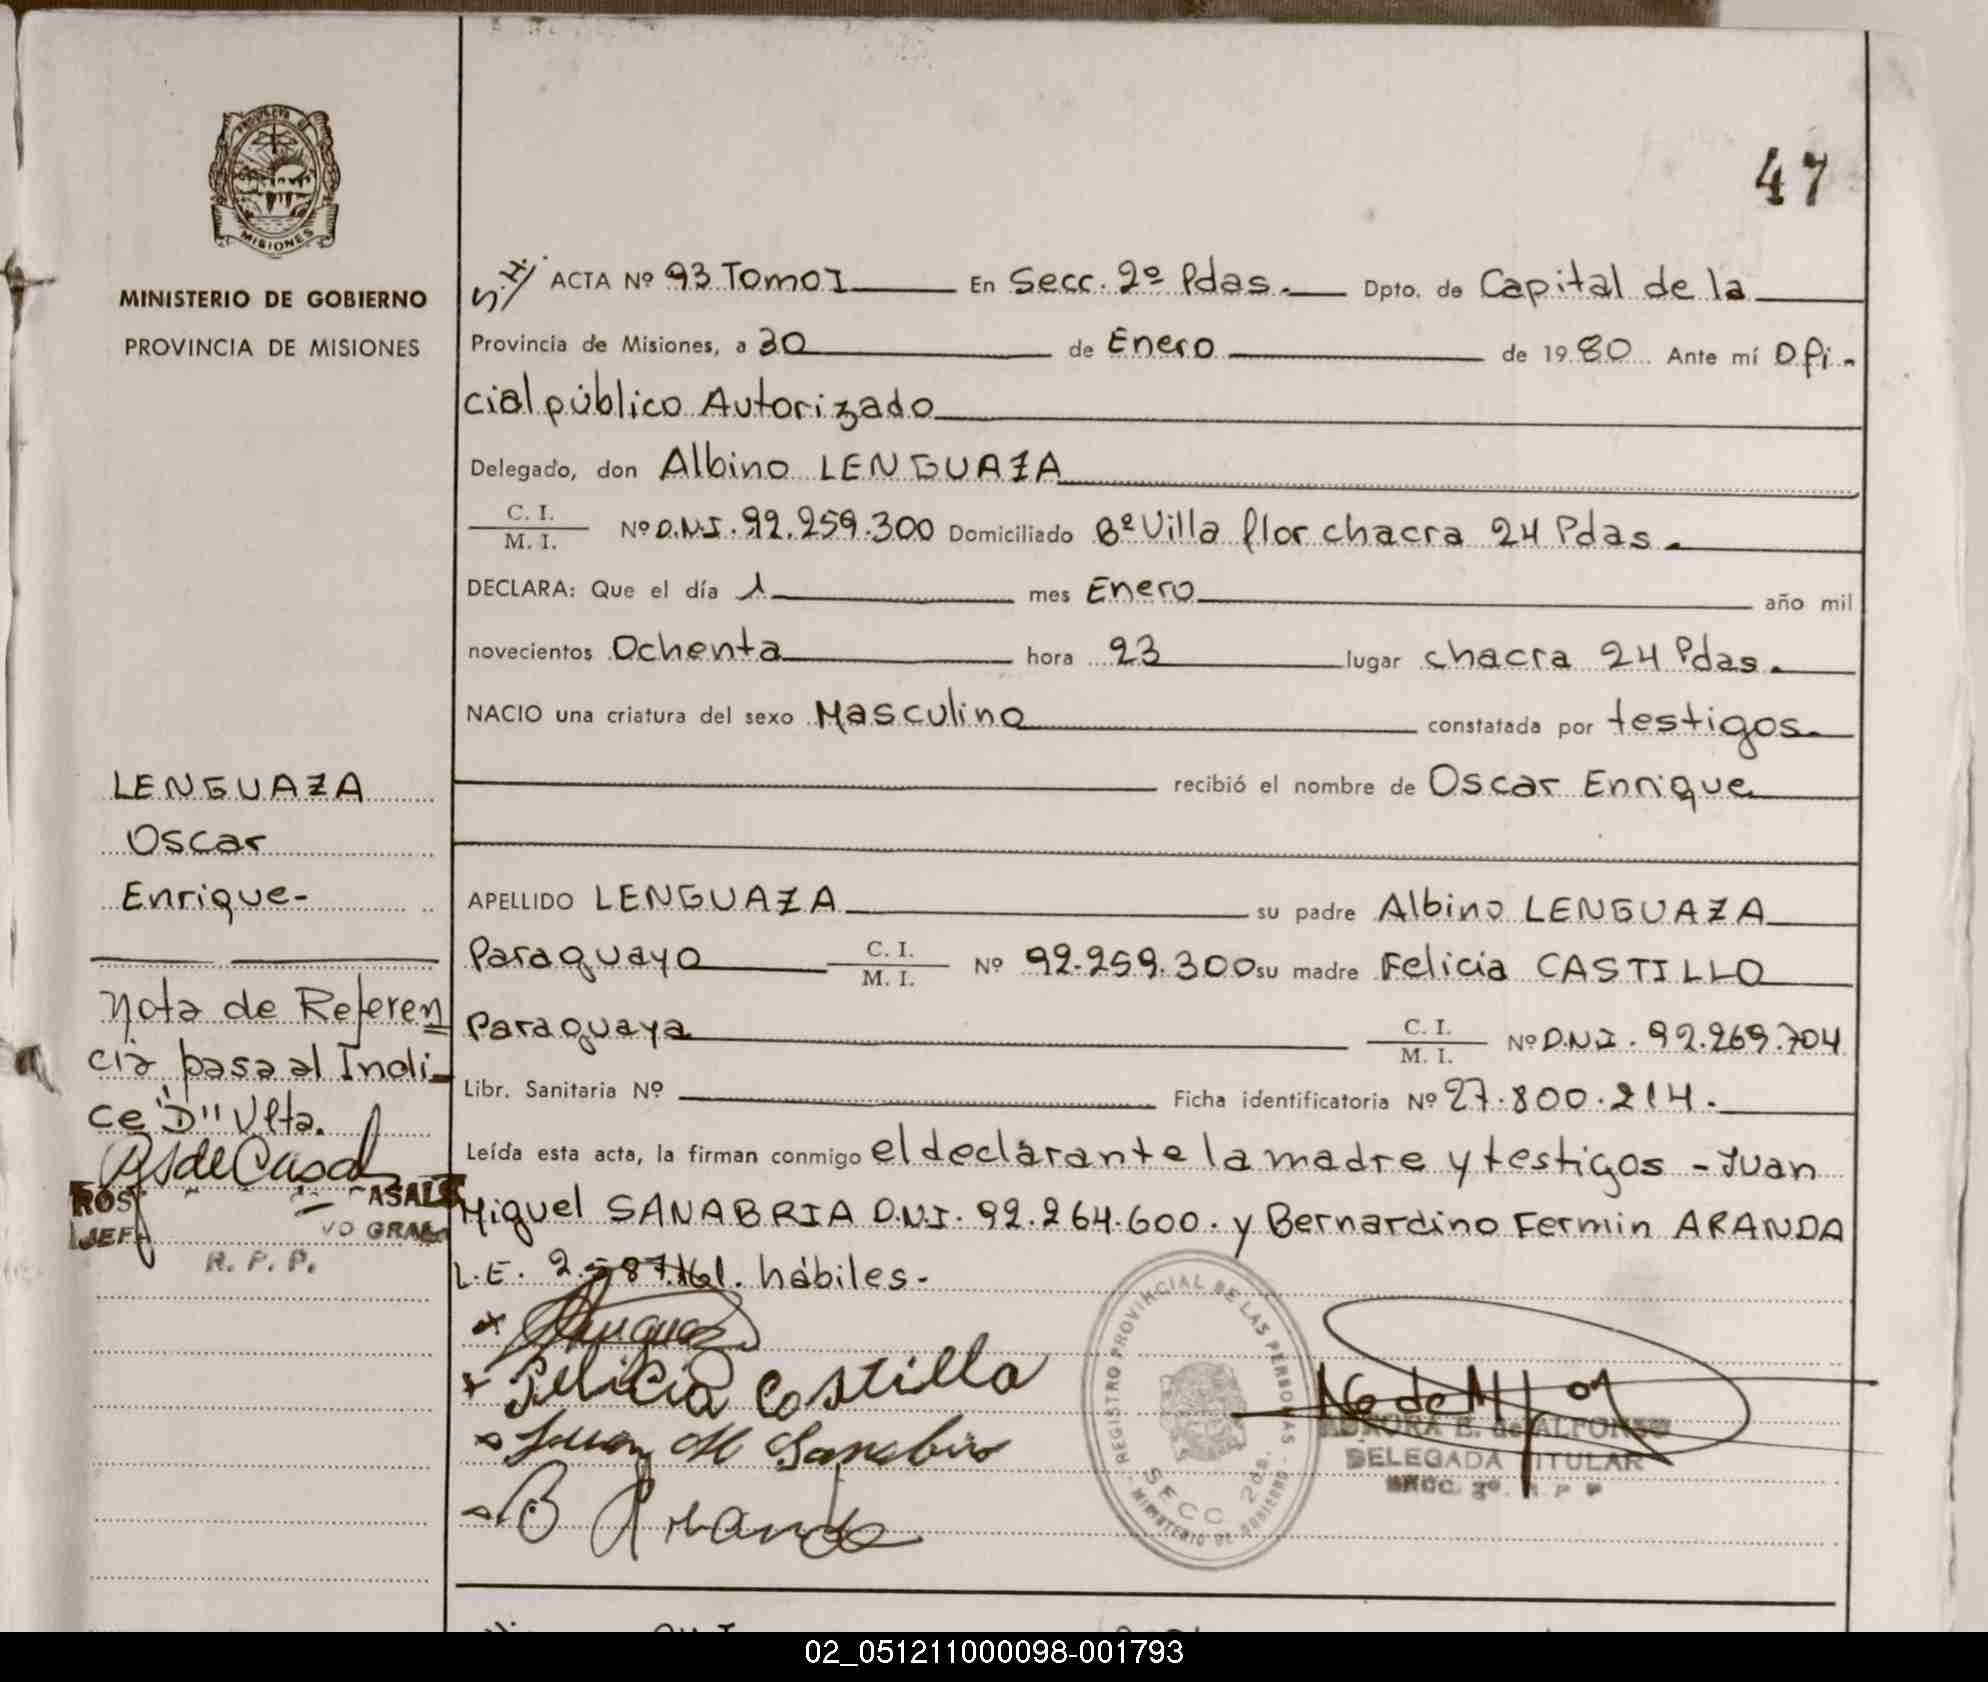 47
PROVINCIA DE
MISIONES
MINISTERIO DE GOBIERNO
PROVINCIA DE MISIONES
ACTA Nº 93 Tomo I En Secc. 2º Pdas. Dpto. de Capital de la
Provincia de Misiones, a 30 de Enero de 1980 Ante mí Ofi-
cial público Autorizado
Delegado, don Albino LENGUAZA
C. I.
M. I. Nº D.N.I. 92.259.300 Domiciliado Bº Villa flor chacra 24 Pdas.
DECLARA: Que el día 1 mes Enero año mil
novecientos Ochenta hora 23 lugar chacra 24 Pdas.
NACIO una criatura del sexo Masculino constatada por testigos
recibió el nombre de Oscar Enrique
APELLIDO LENGUAZA su padre Albino LENGUAZA
Paraguayo C. I. M. I. Nº 92.259.300 su madre Felicia CASTILLO
Paraguaya C. I. M. I. Nº D.N.I. 92.269.704
Libr. Sanitaria Nº Ficha identificatoria Nº 27.800.214.
Leída esta acta, la firman conmigo el declarante la madre y testigos - Juan
Miguel SANABRIA D.N.I. 92.264.600. y Bernardino Fermin ARANDA
L.E. hábiles.
Felicia Costillo
Juan M Sanabria
B Aranda
LENGUAZA
Oscar
Enrique-
Nota de Referen
cia pasa al Indi-
ce "D" Vlta.
R. P. P.
REGISTRO PROVINCIAL DE LAS PERSONAS
SECC 2da.
MINISTERIO DE GOBIERNO
E. de ALFONSO
DELEGADA TITULAR
02_051211000098-001793